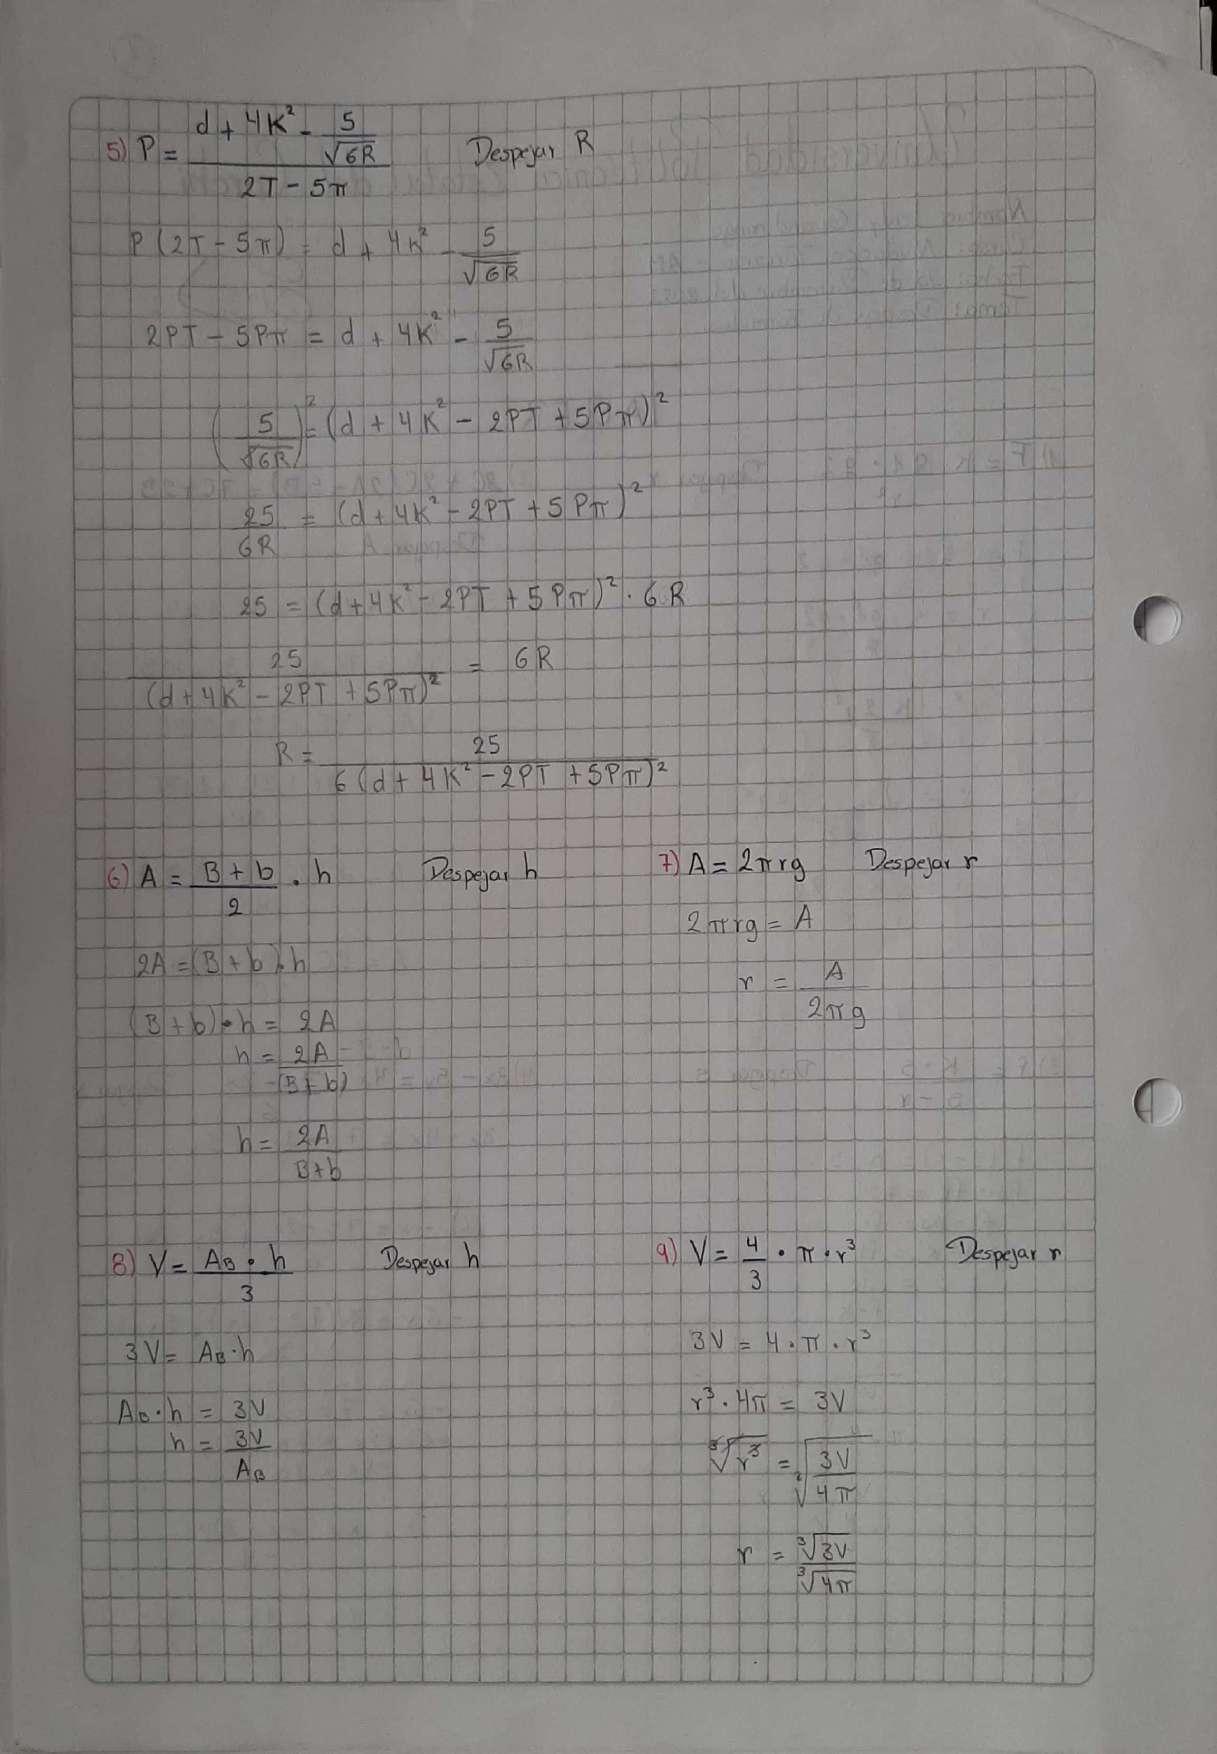 5) P = (d + 4K² - 5/√6R) / (2T - 5π) Despejar R
P (2T - 5π) = d + 4K² - 5/√6R
2PT - 5Pπ = d + 4K² - 5/√6R
(5/√6R)² = (d + 4K² - 2PT + 5Pπ)²
25/6R = (d + 4K² - 2PT + 5Pπ)²
25 = (d + 4K² - 2PT + 5Pπ)² · 6R
25/(d + 4K² - 2PT + 5Pπ)² = 6R
R = 25/6(d + 4K² - 2PT + 5Pπ)²
6) A = (B + b)/2 · h Despejar h
2A = (B + b) · h
(B + b) · h = 2A
h = 2A/(B + b)
h = 2A/B + b
7) A = 2πrg Despejar r
2πrg = A
r = A/2πg
8) V = AB · h/3 Despejar h
3V = AB · h
AB · h = 3V
h = 3V/AB
9) V = 4/3 · π · r³ Despejar r
3V = 4 · π · r³
r³ · 4π = 3V
∛r³ = √3V/4π
r = ∛3V/∛4π